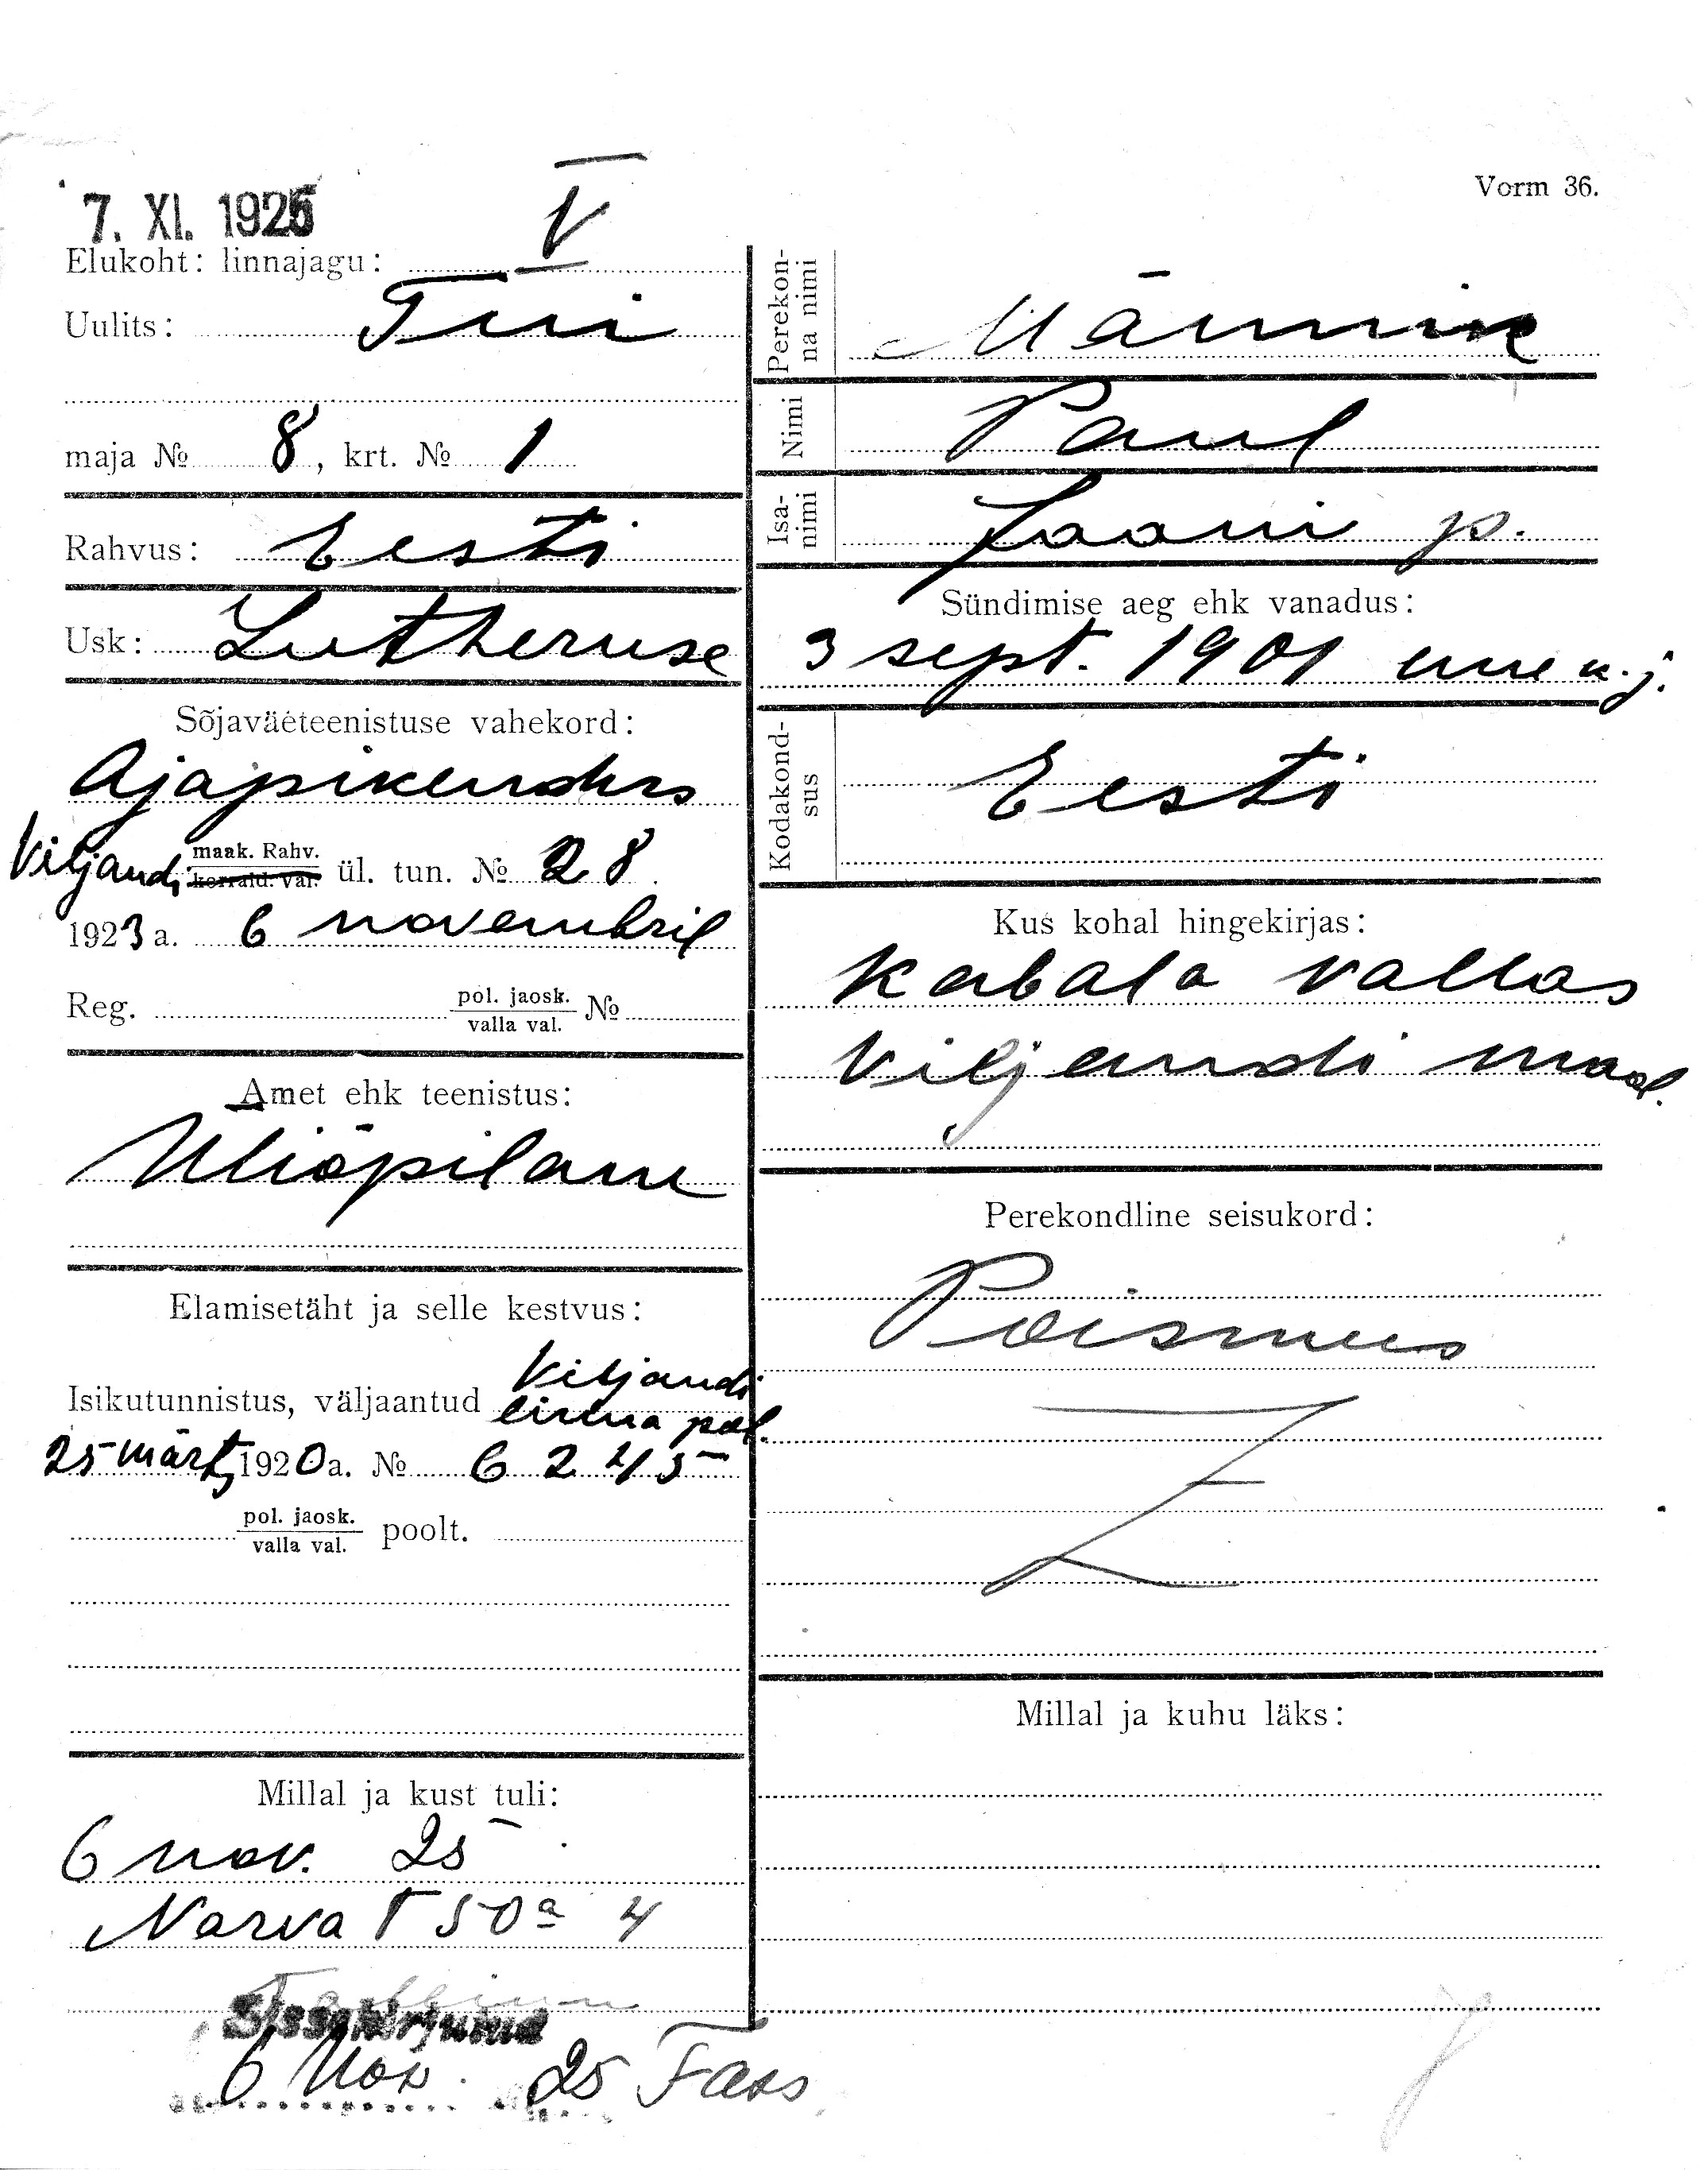 Vorm 36.
7. XI. 1925
Elukoht: linnajagu: V
Uulits: Tiii
maja № 8, krt. № 1
Rahvus: Eesti
Usk: Lutheruse
Sõjaväeteenistuse vahekord:
Ajapikendus
Viljandi maak. Rahv.
korrald. val. ül. tun. № 28.
1923 a. 6 novembril
Reg. pol. jaosk.
valla val. №
Amet ehk teenistus:
Üliõpilane
Elamisetäht ja selle kestvus:
Viljandi
Isikutunnistus, väljaantud linna pol.
25 märts 1920 a. № 6245
pol. jaosk.
valla val. poolt.
Millal ja kust tuli:
6 nov. 25
Narva T 50a 4
Tallinn
Sissekirjutud
6 Nov. 25
Perekon-
na nimi Männik
Nimi Paul
Isa-
nimi Jaani p.
Sündimise aeg ehk vanadus:
3 sept. 1901 enne u. j.
Kodakond-
sus Eesti
Kus kohal hingekirjas:
Kabala vallas
Viljandi maal.
Perekondline seisukord:
Poismees
Millal ja kuhu läks: